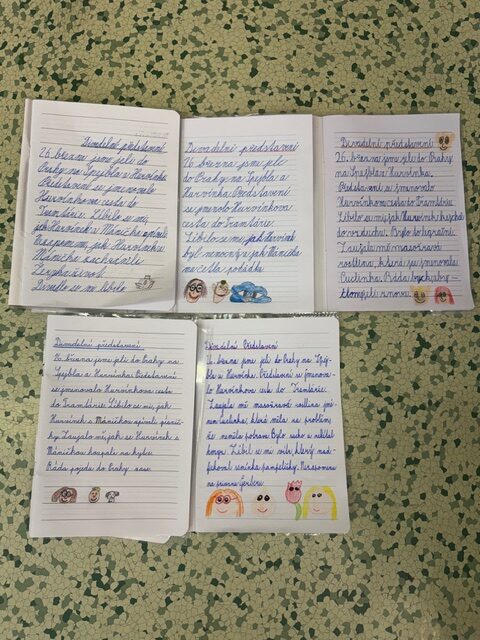 Divadelní představení
26. března jsme jeli do
Prahy na Spejbla a Hurvínka.
Představení se jmenovalo
Hurvínkova cesta do
Tramtárie. Líbilo se mi,
jak Hurvínek a Mánička
jak Hurvínek
Mánička zachránili
Divadlo se mi líbilo.
Divadelní představení
26. března jsme jeli
do Prahy na Spejbla a
Hurvínka. Představení
se jmenovalo Hurvínkova
cesta do Tramtárie.
Líbilo se mi, jak Hurvínek
byl a jak Mánička
na cestu
Divadelní představení
26. března jsme jeli do Prahy
na Spejbla a Hurvínka.
Představení se jmenovalo
Hurvínkova cesta do Tramtárie.
Líbilo se mi, jak Hurvínek
do vzduchu. Bylo to legrační.
Zaujala mě masožravá
rostlina, která se jmenovala
Luctinka. Ráda bych jela
znovu.
Divadelní představení
26. března jsme jeli do Prahy na
Spejbla a Hurvínka. Představení
se jmenovalo Hurvínkova cesta
do Tramtárie. Líbilo se mi, jak
Hurvínek s Máničkou
Zaujalo mě, jak se Hurvínek s
Máničkou houpali na kyvu.
Ráda pojedu do Prahy zase.
Divadelní Představení
26. března jsme jeli do Prahy na Spej-
bla a Hurvínka. Představení se jmenova-
lo Hurvínkova cesta do Tramtárie.
Zaujala mě masožravá rostlina jmé-
nem která měla na problém,
že neměla potravu. Bylo sucho a nelétal
hmyz. Líbil se mi vítr, který nad-
fukoval semínka pampelišky. Nezapomenu
na